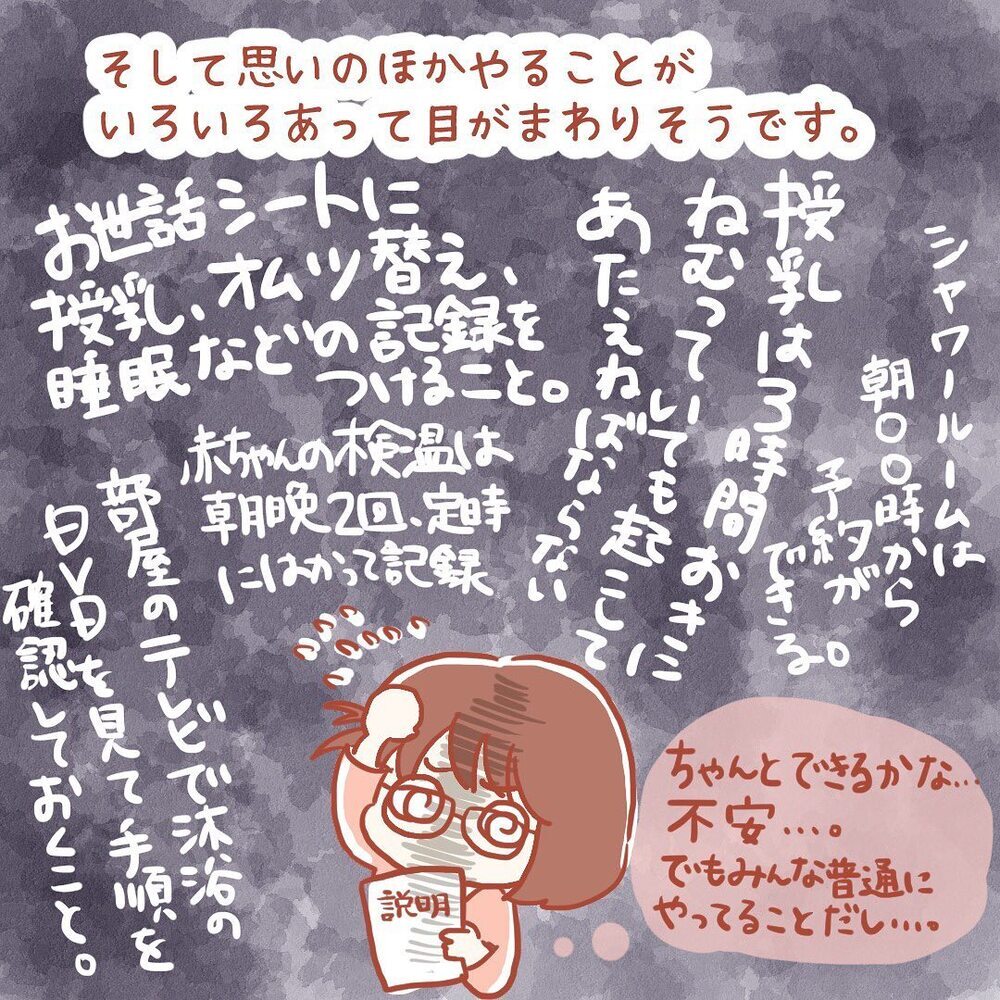 そして思いのほかやることが
いろいろあって目がまわりそうです。
シャワールームは
朝〇〇時から
予約が
できる。
授乳は3時間おきに
ねむっていても起こして
あたえねばならない
お世話シートに
授乳、オムツ替え、
睡眠などの記録を
つけること。
赤ちゃんの検温は
朝晩2回、定時
にはかって記録
部屋のテレビで沐浴の
DVDを見て手順を
確認しておくこと。
説明
ちゃんとできるかな…
不安…。
でもみんな普通に
やってることだし…。